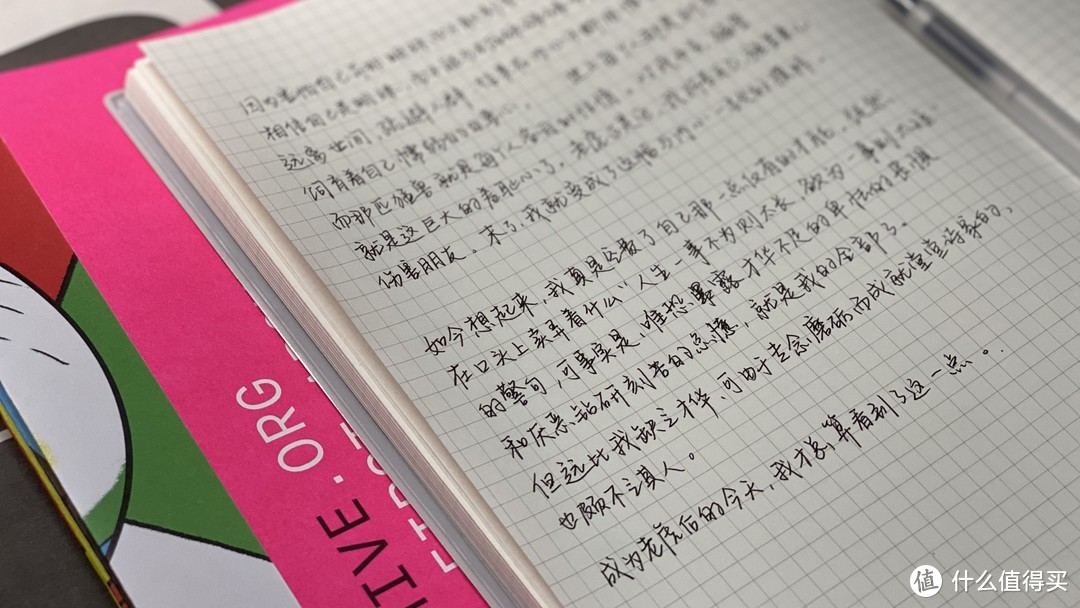 因为害怕自己并非明珠而不敢刻苦
相信自己是明珠，
远离世间，疏避人群，结果在内心不断地用
饲育着自己懦弱的自尊心 世上每个人都是驯兽
而那匹猛兽就是每个人各自的性情。对我而言，猛兽
就是这巨大的羞耻心了。 我折磨自己，损害妻儿，
伤害朋友。末了，我就变成了这幅与内心一致的模样。
如今想起来，我真是空费了自己那一点仅有的才能，徒然
在口头上卖弄着什么“人生一事不为则太长，欲为一事则太短”
的警句，可事实是，唯恐暴露才华不足的卑怯的畏惧
和厌恶钻研刻苦的怠惰，就是我的全部了。
但远比我缺乏才华，可由于专念磨砺而成就堂堂诗家的，
也颇不乏其人。
成为老虎后的今天，我才总算看到了这一点。
TIVE.ORG
值 什么值得买